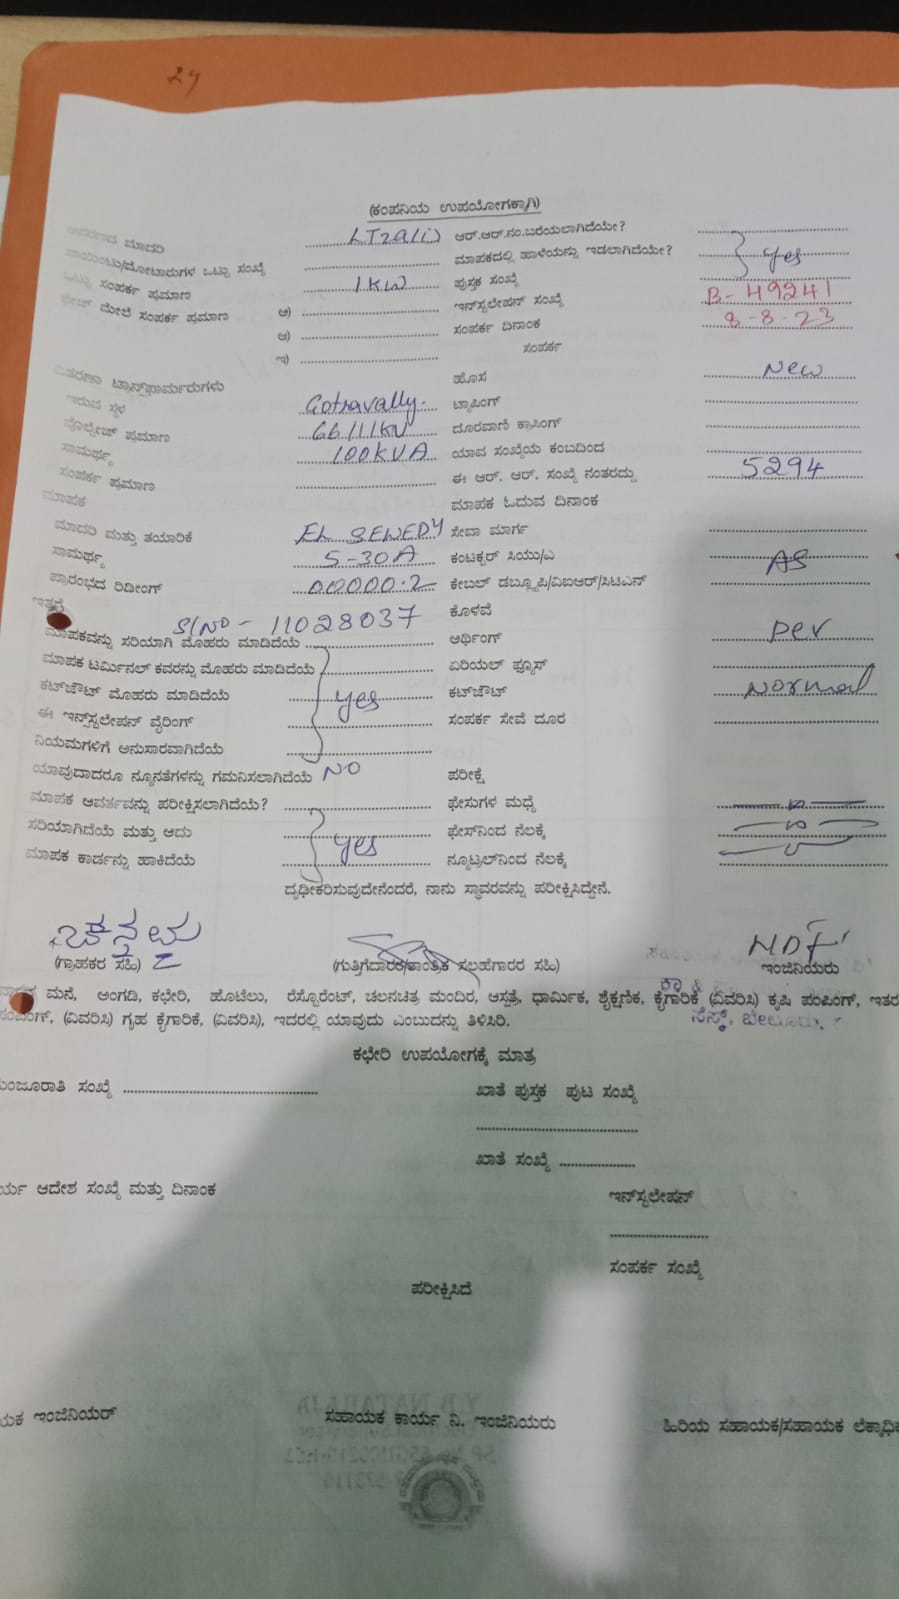 24
(ಕಂಪನಿಯ ಉಪಯೋಗಕ್ಕಾಗಿ)
ಮಾದರಿ LT2a(i) ಆರ್.ಆರ್.ನಂ.ಬರೆಯಲಾಗಿದೆಯೇ?
ಪಾಯಿಂಟು/ಮೋಟಾರುಗಳ ಒಟ್ಟು ಸಂಖ್ಯೆ ಮಾಪಕದಲ್ಲಿ ಹಾಳೆಯನ್ನು ಇಡಲಾಗಿದೆಯೇ? yes
ಒಟ್ಟು ಸಂಪರ್ಕ ಪ್ರಮಾಣ 1KW ಪುಸ್ತಕ ಸಂಖ್ಯೆ
ಫೇಜ್ ಮೇಲೆ ಸಂಪರ್ಕ ಪ್ರಮಾಣ ಅ) ಇನ್‌ಸ್ಟಲೇಷನ್ ಸಂಖ್ಯೆ B-49241
ಆ) ಸಂಪರ್ಕ ದಿನಾಂಕ 8-8-23
ಇ) ಸಂಪರ್ಕ
ವಿತರಣಾ ಟ್ರಾನ್ಸ್‌ಫಾರ್ಮರುಗಳು ಹೊಸ New
ಇರುವ ಸ್ಥಳ Gotravally. ಟ್ಯಾಪಿಂಗ್
ವೊಲ್ಟೇಜ್ ಪ್ರಮಾಣ 66/11KV ದೂರವಾಣಿ ಕ್ರಾಸಿಂಗ್
ಸಾಮರ್ಥ್ಯ 100KVA ಯಾವ ಸಂಖ್ಯೆಯ ಕಂಬದಿಂದ
ಸಂಪರ್ಕ ಪ್ರಮಾಣ ಈ ಆರ್. ಆರ್. ಸಂಖ್ಯೆ ನಂತರದ್ದು 5294
ಮಾಪಕ ಮಾಪಕ ಓದುವ ದಿನಾಂಕ
ಮಾದರಿ ಮತ್ತು ತಯಾರಿಕೆ EL SEWEDY ಸೇವಾ ಮಾರ್ಗ
ಸಾಮರ್ಥ್ಯ 5-30A ಕಂಟಕ್ಟರ್ ಸಿಯು/ಎ AS
ಪ್ರಾರಂಭದ ರಿಡೀಂಗ್ 00000.2 ಕೇಬಲ್ ಡಬ್ಲ್ಯೂಪಿ/ವಿಐಆರ್/ಸಿಟಿಎಸ್
ಇತ್ತರೆ Sl No - 11028037 ಕೊಳವೆ
ಮಾಪಕವನ್ನು ಸರಿಯಾಗಿ ಮೊಹರು ಮಾಡಿದೆಯೆ ಅರ್ಥಿಂಗ್ per
ಮಾಪಕ ಟರ್ಮಿನಲ್ ಕವರನ್ನು ಮೊಹರು ಮಾಡಿದೆಯೆ ಏರಿಯಲ್ ಫ್ಯೂಸ್
ಕಟ್‌ಔಟ್ ಮೊಹರು ಮಾಡಿದೆಯೆ yes ಕಟ್‌ಔಟ್ Normal
ಈ ಇನ್ಸ್‌ಸ್ಟಲೇಷನ್ ವೈರಿಂಗ್ ಸಂಪರ್ಕ ಸೇವೆ ದೂರ
ನಿಯಮಗಳಿಗೆ ಅನುಸಾರವಾಗಿದೆಯೆ
ಯಾವುದಾದರೂ ನ್ಯೂನತೆಗಳನ್ನು ಗಮನಿಸಲಾಗಿದೆಯೆ NO ಪರೀಕ್ಷೆ
ಮಾಪಕ ಆವರ್ತವನ್ನು ಪರೀಕ್ಷಿಸಲಾಗಿದೆಯೆ? ಫೇಸುಗಳ ಮಧ್ಯೆ
ಸರಿಯಾಗಿದೆಯೆ ಮತ್ತು ಅದು yes ಫೇಸ್‌ನಿಂದ ನೆಲಕ್ಕೆ
ಮಾಪಕ ಕಾರ್ಡನ್ನು ಹಾಕಿದೆಯೆ ನ್ಯೂಟ್ರಲ್‌ನಿಂದ ನೆಲಕ್ಕೆ
ದೃಢೀಕರಿಸುವುದೇನೆಂದರೆ, ನಾನು ಸ್ಥಾವರವನ್ನು ಪರೀಕ್ಷಿಸಿದ್ದೇನೆ.
(ಗ್ರಾಹಕರ ಸಹಿ) (ಗುತ್ತಿಗೆದಾರಕ/ತಾಂತ್ರಿಕ ಸಲಹೆಗಾರರ ಸಹಿ) ಇಂಜಿನಿಯರು
ಮನೆ, ಅಂಗಡಿ, ಕಛೇರಿ, ಹೊಟೆಲು, ರೆಸ್ಟೊರೆಂಟ್, ಚಲನಚಿತ್ರ ಮಂದಿರ, ಆಸ್ಪತ್ರೆ, ಧಾರ್ಮಿಕ, ಶೈಕ್ಷಣಿಕ, ಕೈಗಾರಿಕೆ (ವಿವರಿಸಿ) ಕೃಷಿ ಪಂಪಿಂಗ್, ಇತರ
ಪಂಪಿಂಗ್, (ವಿವರಿಸಿ) ಗೃಹ ಕೈಗಾರಿಕೆ, (ವಿವರಿಸಿ), ಇದರಲ್ಲಿ ಯಾವುದು ಎಂಬುದನ್ನು ತಿಳಿಸಿರಿ. ಸೆಸ್ಕ್, ಬೇಲೂರು.
ಕಛೇರಿ ಉಪಯೋಗಕ್ಕೆ ಮಾತ್ರ
ಮಂಜೂರಾತಿ ಸಂಖ್ಯೆ ಖಾತೆ ಪುಸ್ತಕ ಪುಟ ಸಂಖ್ಯೆ
ಖಾತೆ ಸಂಖ್ಯೆ
ಆದೇಶ ಸಂಖ್ಯೆ ಮತ್ತು ದಿನಾಂಕ ಇನ್‌ಸ್ಟಲೇಷನ್
ಸಂಪರ್ಕ ಸಂಖ್ಯೆ
ಪರೀಕ್ಷಿಸಿದೆ
ಇಂಜಿನಿಯರ್ ಸಹಾಯಕ ಕಾರ್ಯ ನಿ. ಇಂಜಿನಿಯರು ಹಿರಿಯ ಸಹಾಯಕ/ಸಹಾಯಕ ಲೆಕ್ಕಾಧಿಕ